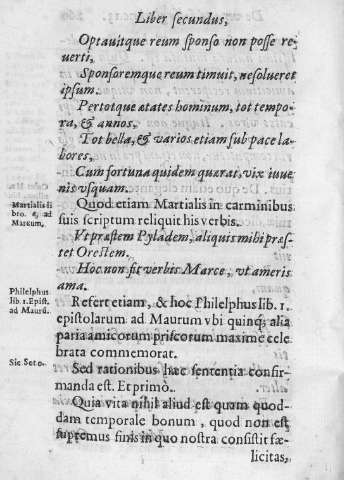 Liber secundus,
Optauitque reum sponso non posse re
uerti,
Sponsoremque reum timuit, ne solueret
ipsum.
Per totque ætates hominum, tot tempo
ra, & annos,
Tot bella, & varios etiam sub pace la
bores,
Cum fortuna quidem quærat, vix iuue
nis vsquam.
Quod etiam Martialis in carminibus
suis scriptum reliquit his verbis.
Martialis li
bro. 6. ad
Marcum.
Vt præstem Pyladem, aliquis mihi præs-
tet Orestem.
Hoc non fit verbis Marce, vt ameris
ama.
Refert etiam, & hoc Philelphus lib. 1.
epistolarum ad Maurum vbi quinq; alia
paria amicorum priscorum maxime cele
brata commemorat.
Philelphus
lib. 1. Epist.
ad Maurū.
Sed rationibus hæc sententia confir-
manda est. Et primò.
Quia vita nihil aliud est quam quod-
dam temporale bonum, quod non est
supremus finis in quo nostra consistit fæ-
licitas,